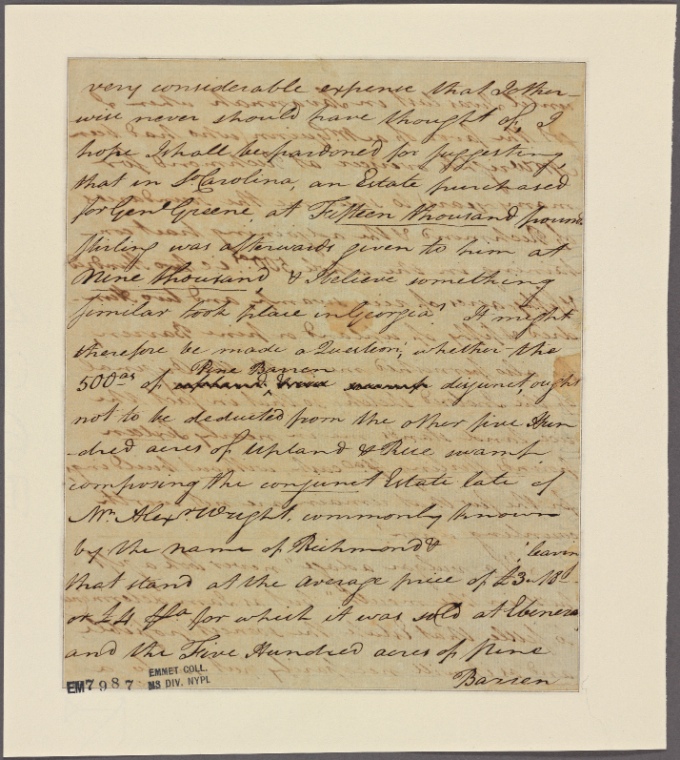 very considerable expense that I other-
wise never should have thought of, I
hope I shall be pardoned for suggesting,
that in So. Carolina, an Estate purchased
for Genl. Greene, at Fifteen thousand pounds
sterling was afterwards given to him at
Nine thousand, & I believe something
similar took place in Georgia It might
therefore be made a Question, whether the
Pine Barren
500 as of upland swamp disjunct, ought
not to be deducted from the other five Hun
-dred acres of Upland & Rice swamp
composing the conjunct Estate late of
Mr. Alexr. Wright, commonly known
by the name of Richmond &
that stand at the average price of £3.18
or £4 for which it was sold at Ebenezer
and the Five Hundred acres of Pine
Barren
EM7987
EMMET COLL.
MS DIV. NYPL